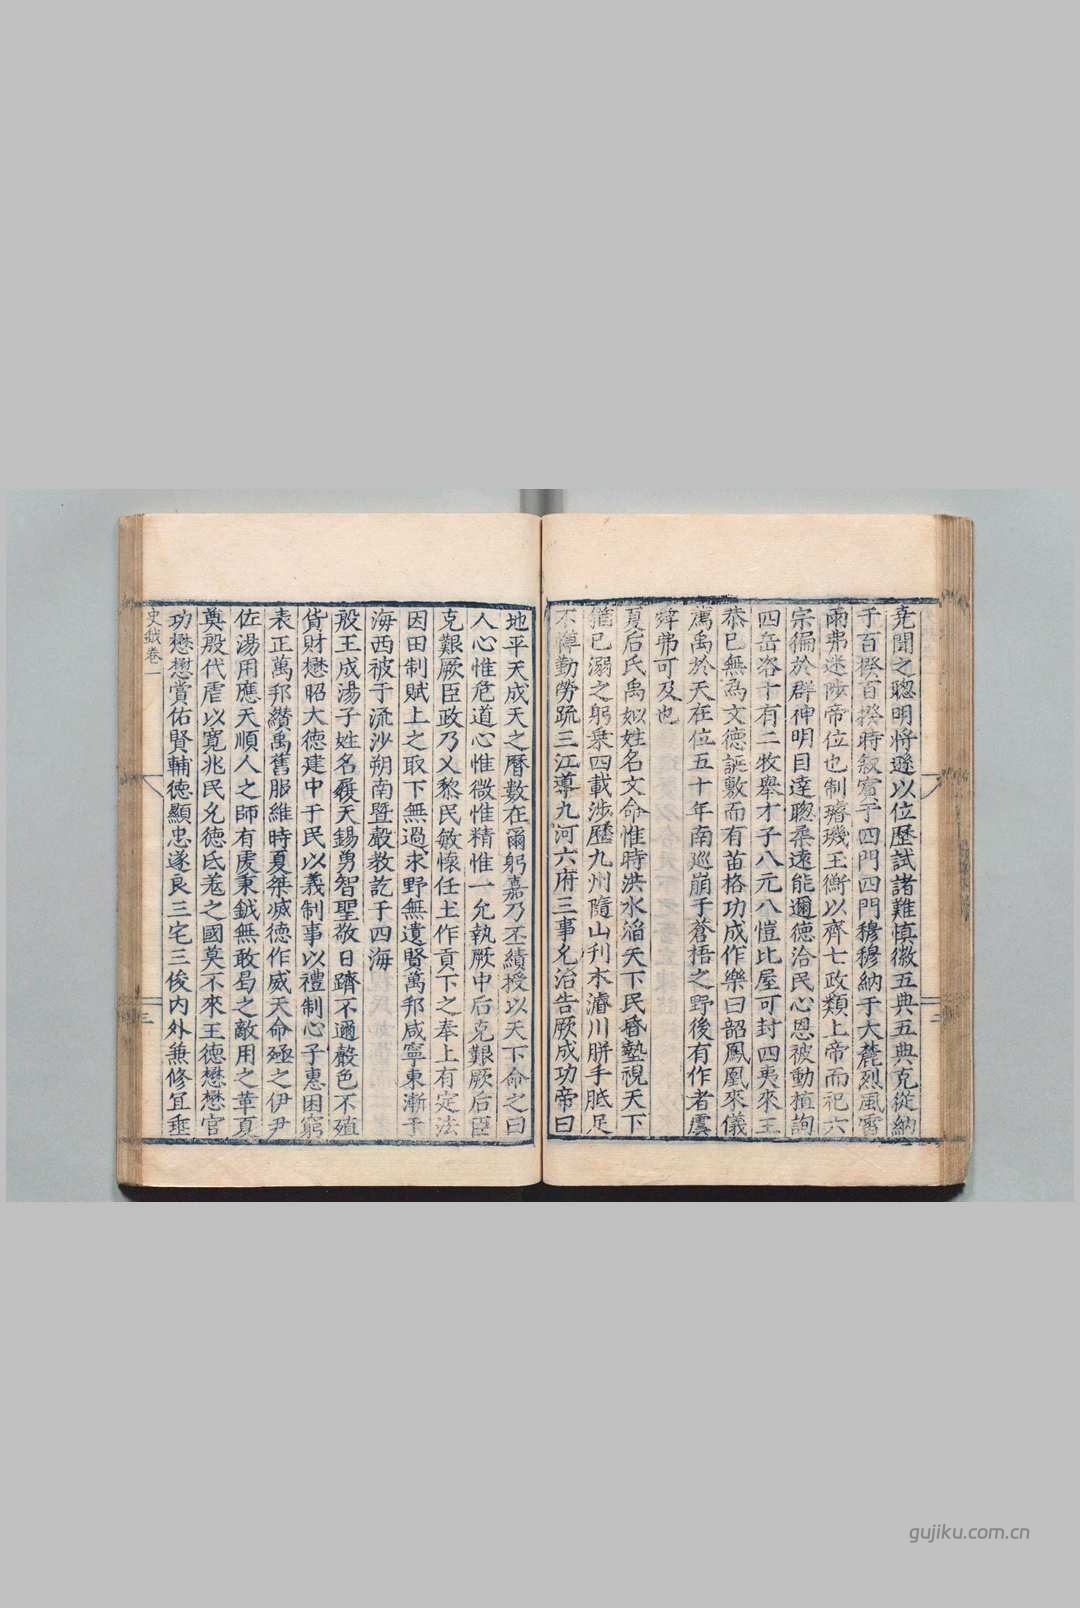 堯聞之聰明將遜以位歷試諸難慎徽五典五典克從納
于百揆百揆時叙賓于四門四門穆穆納于大麓烈風雷
雨弗迷陟帝位也制璿璣玉衡以齊七政類上帝而祀六
宗徧於群神明目達聰柔遠能邇德洽民心恩被動植詢
四岳咨十有二牧舉才子八元八愷比屋可封四夷來王
恭已無為文德誕敷而有苗格功成作樂曰韶鳳凰來儀
薦禹於天在位五十年南巡崩于蒼梧之野後有作者虞
舜弗可及也
夏后氏禹姒姓名文命惟時洪水滔天下民昏墊視天下
猶已溺之躬乘四載涉歷九州隨山刋木濬川胼手胝足
不憚勤勞䟽三江導九河六府三事允治告厥成功帝曰
地平天成天之曆數在爾躬嘉乃丕績授以天下命之曰
人心惟危道心惟微惟精惟一允執厥中后克艱厥后臣
克艱厥臣政乃乂黎民敏懷任土作貢下之奉上有定法
因田制賦上之取下無過求野無遺賢萬邦咸寧東漸于
海西被于流沙朔南暨聲教訖于四海
殷王成湯子姓名履天錫勇智聖敬日躋不邇聲色不殖
貨財懋昭大德建中于民以義制事以禮制心子惠困窮
表正萬邦纘禹舊服維時夏桀滅德作威天命殛之伊尹
佐湯用應天順人之師有虔秉鉞無敢曷之敵用之華夏
奠殷代虐以寬兆民允德氐羌之國莫不來王德懋懋官
功懋懋賞佑賢輔德顯忠遂良三宅三俊内外兼修宜垂
史鉞卷一
三
gujiku.com.cn